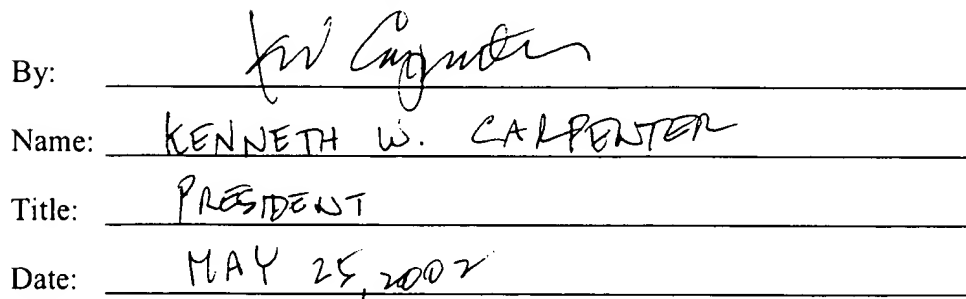 By: KW Carpenter
Name: KENNETH W. CARPENTER
Title: PRESIDENT
Date: MAY 25, 2002